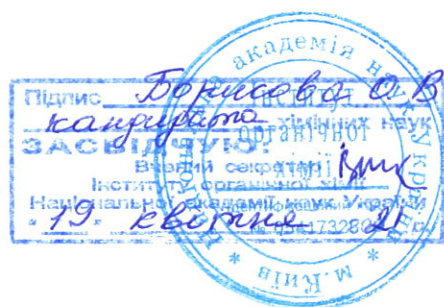 Підпис Борисова О В
кандидата хімічних наук
ЗАСВІДЧУЮ:
Вчений секретар
Інституту органічної хімії
Національної академії наук України
"19" квітня 21 р.
академія наук Укра
Інститут
органічної
хімії
* м.Київ *